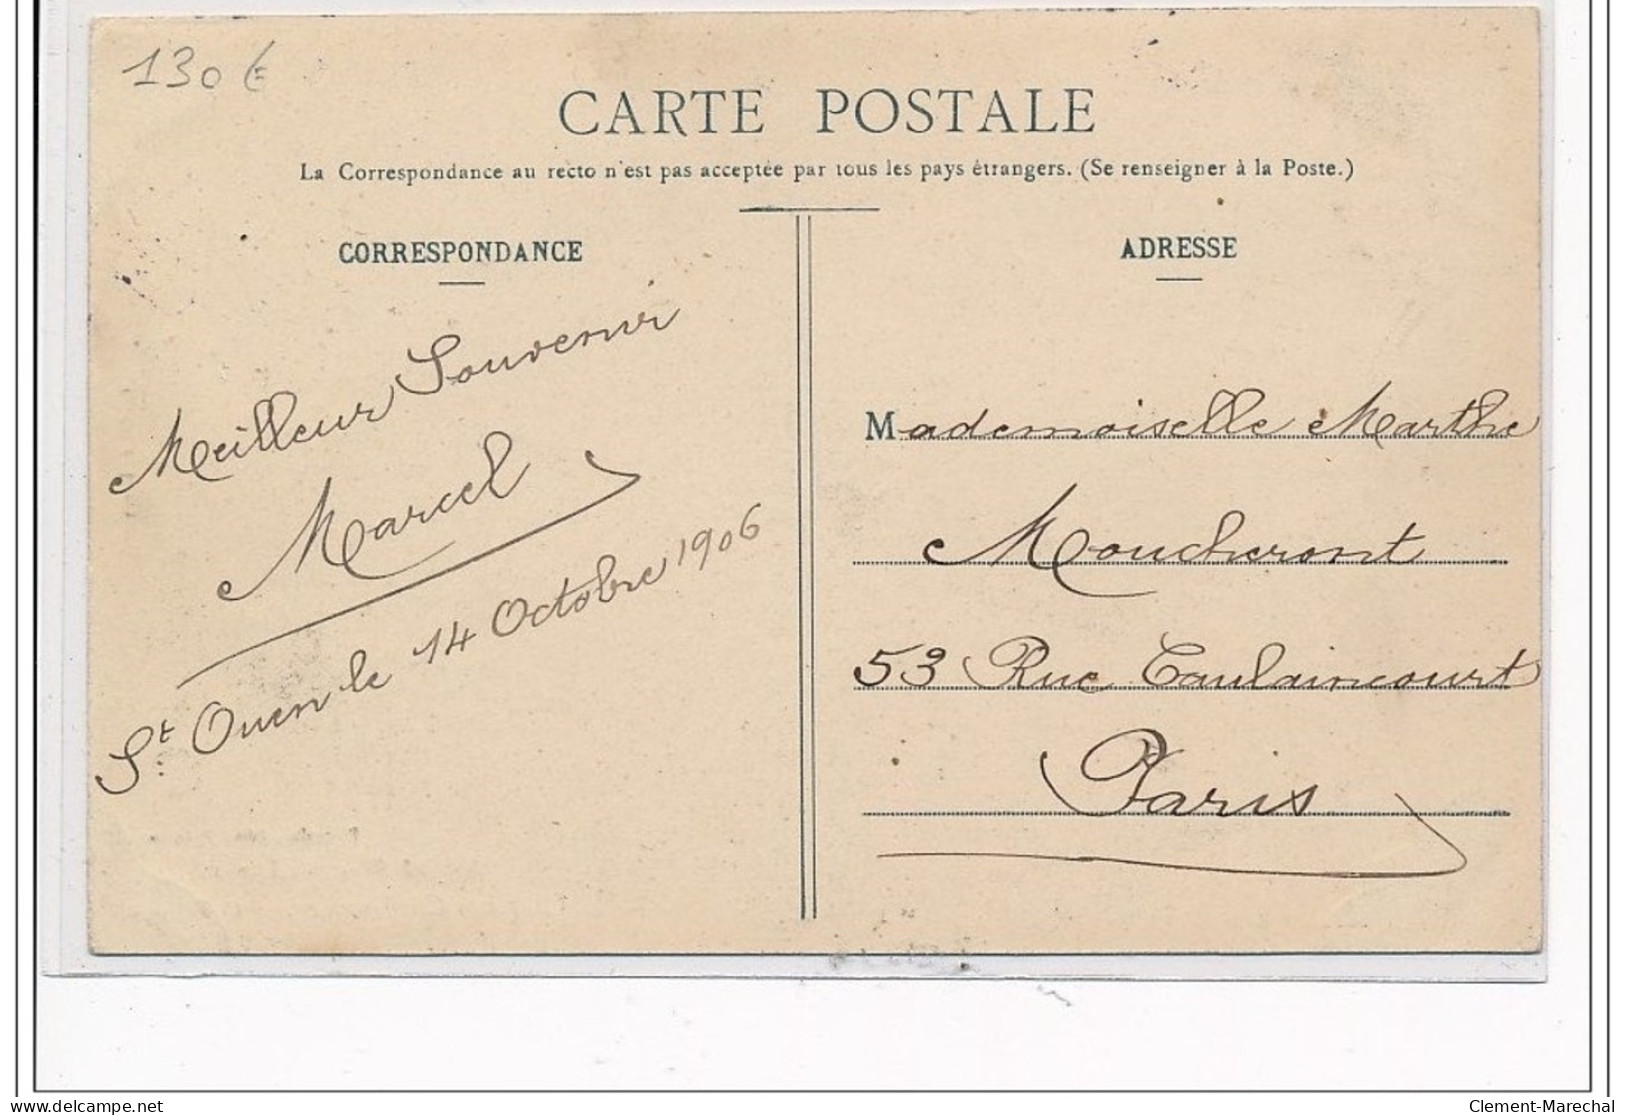 130€
CARTE POSTALE
La Correspondance au recto n'est pas acceptée par tous les pays étrangers. (Se renseigner à la Poste.)
CORRESPONDANCE
Meilleur Souvenir
Marcel
St Ouen le 14 Octobre 1906
ADRESSE
Mademoiselle Marthe
Moucheront
53 Rue Caulaincourt
Paris
delcampe.net
Clement-Marechal